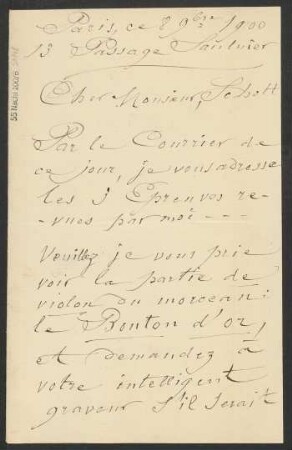 Paris, ce 8 9bre 1900
13 Passage Saulnier
Cher Monsieur, Schott
Par le Courrier de
ce jour, je vous adresse
les 3 Epreuves re-
-vues par moi - - -
Veuillez je vous prie
voir la partie de
violon du morceau:
le Bouton d'or,
et demandez à
votre intelligent
graveur s'il serait